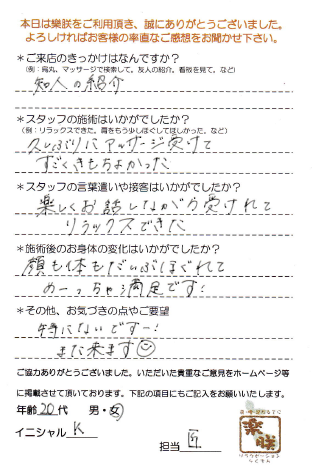 本日は樂朕をご利用頂き、誠にありがとうございました。
よろしければお客様の率直なご感想をお聞かせ下さい。
＊ご来店のきっかけはなんですか？
（例：烏丸、マッサージで検索して。友人の紹介。看板を見て。など）
知人の紹介
＊スタッフの施術はいかがでしたか？
（例：リラックスできた。肩をもう少しほぐしてほしかった。など）
久しぶりにマッサージ受けて
すごくきもちよかった
＊スタッフの言葉遣いや接客はいかがでしたか？
楽しくお話しながら受けれて
リラックスできた
＊施術後のお身体の変化はいかがでしたか？
顔も体もだいぶほぐれて
めーっちゃ満足です！
＊その他、お気づきの点やご要望
特にないですー！
また来ます☺
ご協力ありがとうございました。いただいた貴重なご意見をホームページ等
に掲載させて頂いております。下記の項目にもご記入をお願いいたします。
年齢 20 代　男・女
イニシャル K
担当 匠
樂朕
リラクゼーション
らくちん